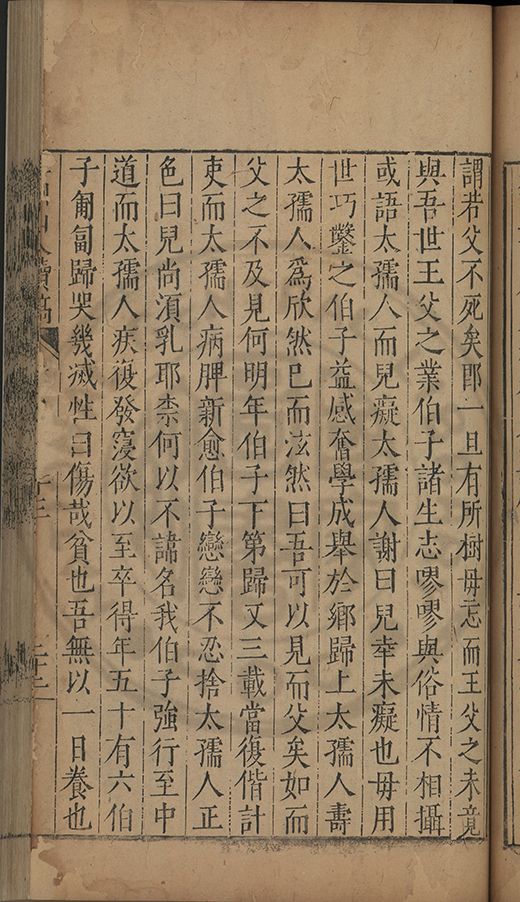 謂若父不死矣卽一旦有所樹毋忘而王父之未竟
與吾世王父之業伯子諸生志嘐嘐與俗情不相攝
或語太孺人而兒癡太孺人謝曰兒幸未癡也毋用
世巧鑿之伯子益感奮學成舉於鄉歸上太孺人壽
太孺人爲欣然已而泫然曰吾可以見而父矣如而
父之不及見何明年伯子下第歸又三載當復偕計
吏而太孺人病脾新愈伯子戀戀不忍捨太孺人正
色曰兒尚須乳耶柰何以不諱名我伯子強行至中
道而太孺人疾復發寖欲以至卒得年五十有六伯
子匍匐歸哭幾滅性曰傷哉貧也吾無以一日養也
山人續稿